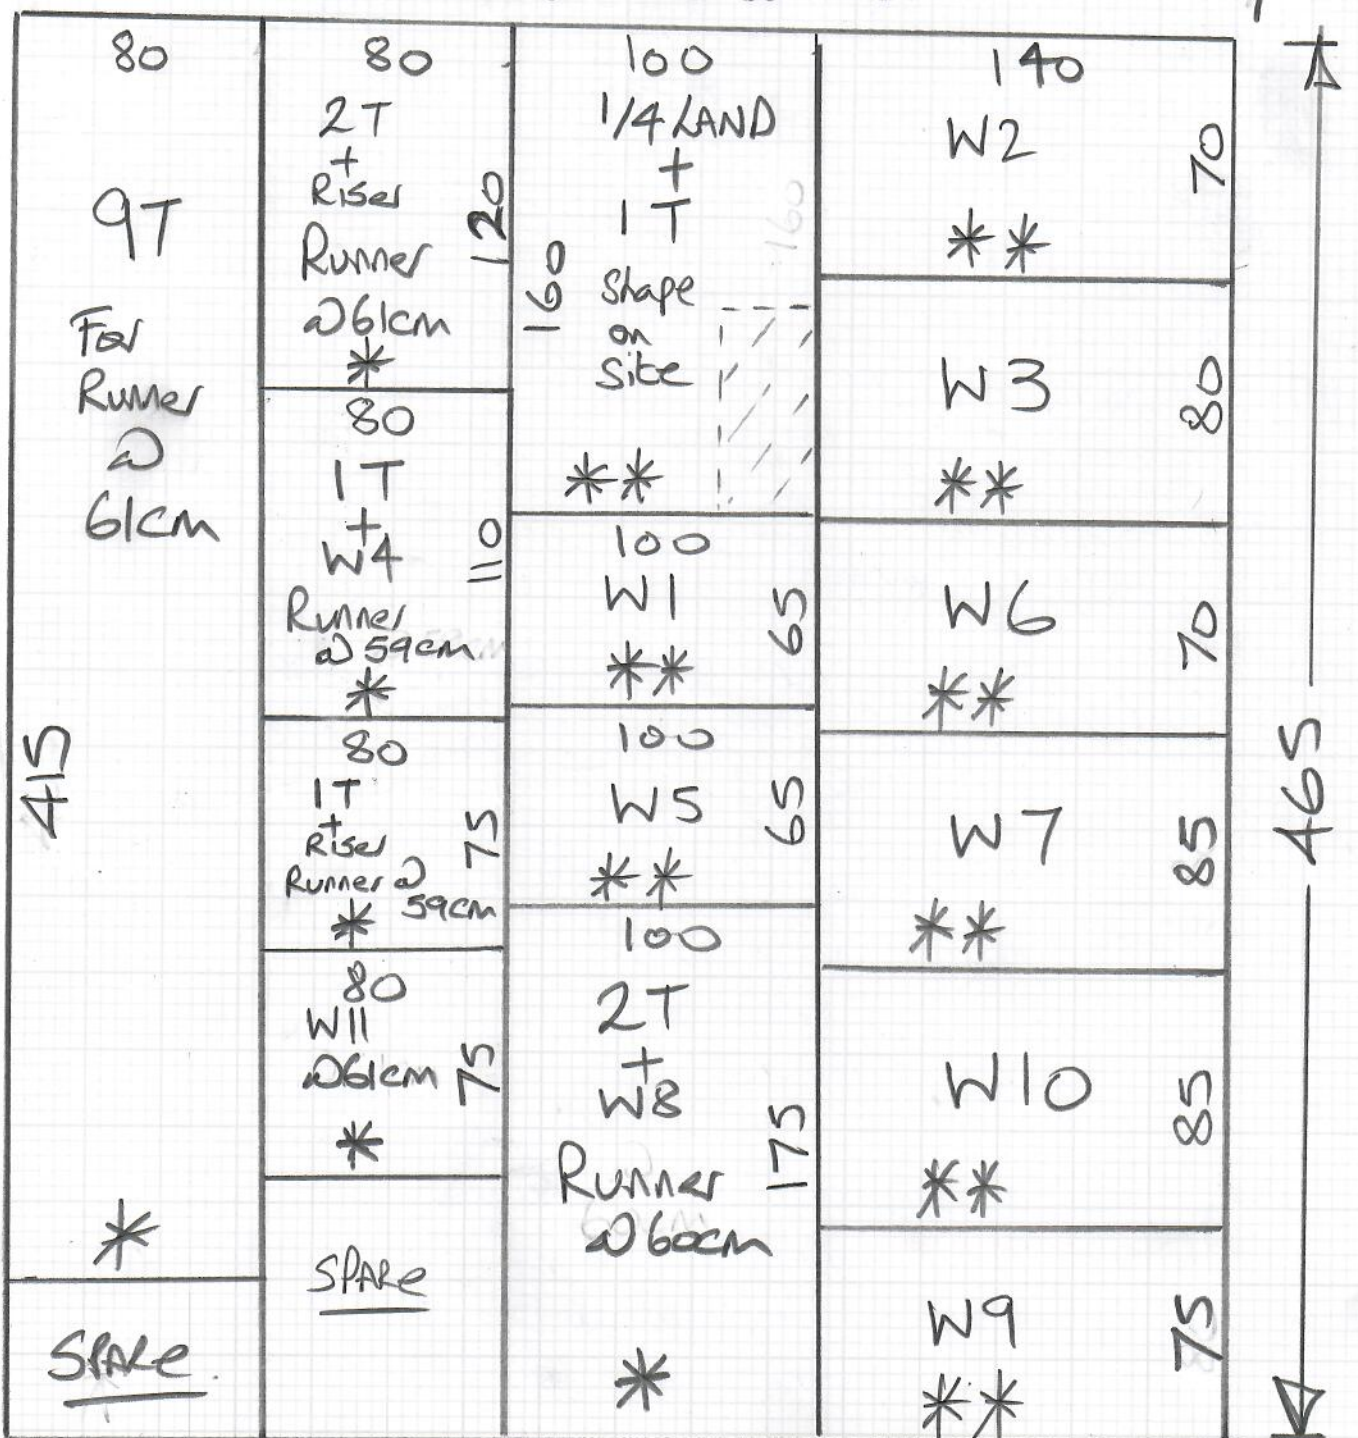 80
9T
For
Runner
@
61cm
415
*
SPARE
80
2T
+
Riser
Runner
@61cm
*
120
80
1T
+
W4
Runner
@ 59cm
*
110
80
1T
+
Riser
Runner @
59cm
*
75
80
W11
@61cm
*
75
SPARE
100
1/4 LAND
+
1T
Shape
on
Site
**
160
160
100
W1
**
65
100
W5
**
65
100
2T
+
W8
Runner
@ 60cm
*
175
140
W2
**
70
W3
**
80
W6
**
70
W7
**
85
W10
**
85
W9
**
75
465